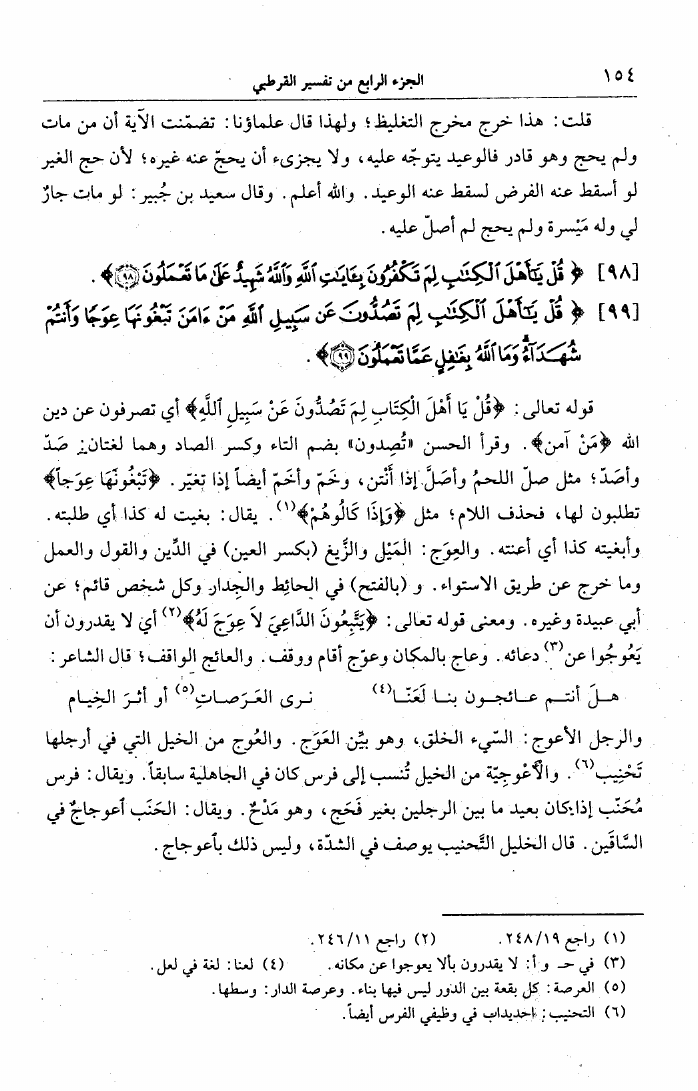 ١٥٤
الجزء الرابع من تفسير القرطبي
قلت: هذا خرج مخرج التغليظ؛ ولهذا قال علماؤنا: تضمّنت الآية أن من مات
ولم يحج وهو قادر فالوعيد يتوجّه عليه، ولا يجزىء أن يحجّ عنه غيره؛ لأن حج الغير
لو أسقط عنه الفرض لسقط عنه الوعيد. والله أعلم. وقال سعيد بن جُبير: لو مات جارٌ
لي وله مَيْسرة ولم يحج لم أصلّ عليه.
[٩٨] ﴿ قُلْ يَٰٓأَهْلَ ٱلْكِتَٰبِ لِمَ تَكْفُرُونَ بِـَٔايَٰتِ ٱللَّهِ وَٱللَّهُ شَهِيدٌ عَلَىٰ مَا تَعْمَلُونَ ٩٨ ﴾.
[٩٩] ﴿ قُلْ يَٰٓأَهْلَ ٱلْكِتَٰبِ لِمَ تَصُدُّونَ عَن سَبِيلِ ٱللَّهِ مَنْ ءَامَنَ تَبْغُونَهَا عِوَجًا وَأَنتُمْ
شُهَدَآءُ وَمَا ٱللَّهُ بِغَٰفِلٍ عَمَّا تَعْمَلُونَ ٩٩ ﴾.
قوله تعالى: ﴿قُلْ يَا أَهْلَ الْكِتَابِ لِمَ تَصُدُّونَ عَنْ سَبِيلِ ٱللَّهِ﴾ أي تصرفون عن دين
الله ﴿مَنْ آمن﴾. وقرأ الحسن «تُصِدون» بضم التاء وكسر الصاد وهما لغتان: صَدّ
وأصَدّ؛ مثل صلّ اللحمُ وأصَلّ إذا أَنْتن، وخَمّ وأخَمّ أيضاً إذا تغيّر. ﴿تَبْغُونَهَا عِوَجاً﴾
تطلبون لها، فحذف اللام؛ مثل ﴿وَإِذَا كَالُوهُمْ﴾(١). يقال: بغيت له كذا أي طلبته.
وأبغيته كذا أي أعنته. والعِوَج: المَيْل والزَّيغ (بكسر العين) في الدِّين والقول والعمل
وما خرج عن طريق الاستواء. و (بالفتح) في الحائط والجدار وكل شخص قائم؛ عن
أبي عبيدة وغيره. ومعنى قوله تعالى: ﴿يَتَّبِعُونَ الدَّاعِيَ لاَ عِوَجَ لَهُ﴾(٢) أي لا يقدرون أن
يَعُوجُوا عن(٣) دعائه. وعاج بالمكان وعوّج أقام ووقف. والعائج الواقف؛ قال الشاعر:
هـلَ أنتـم عـائجـون بنـا لَعَنّـا(٤) نـرى العَـرَصـاتِ(٥) أو أثـرَ الخِيـام
والرجل الأعوج: السّيء الخلق، وهو بيِّن العَوَج. والعُوج من الخيل التي في أرجلها
تَحْنِيب(٦). والأَعْوجِيّة من الخيل تُنسب إلى فرس كان في الجاهلية سابقاً. ويقال: فرس
مُحَنّب إذا كان بعيد ما بين الرجلين بغير فَحَج، وهو مَدْحٌ. ويقال: الحَنَب ٱعوجاجٌ في
السَّاقَين. قال الخليل التَّحنيب يوصف في الشدّة، وليس ذلك بٱعوجاج.
(١) راجع ٢٤٨/١٩. (٢) راجع ٢٤٦/١١.
(٣) في حـ و أ: لا يقدرون بألا يعوجوا عن مكانه. (٤) لعنا: لغة في لعل.
(٥) العرصة: كل بقعة بين الدور ليس فيها بناء. وعرصة الدار: وسطها.
(٦) التحنيب: احديداب في وظيفي الفرس أيضاً.